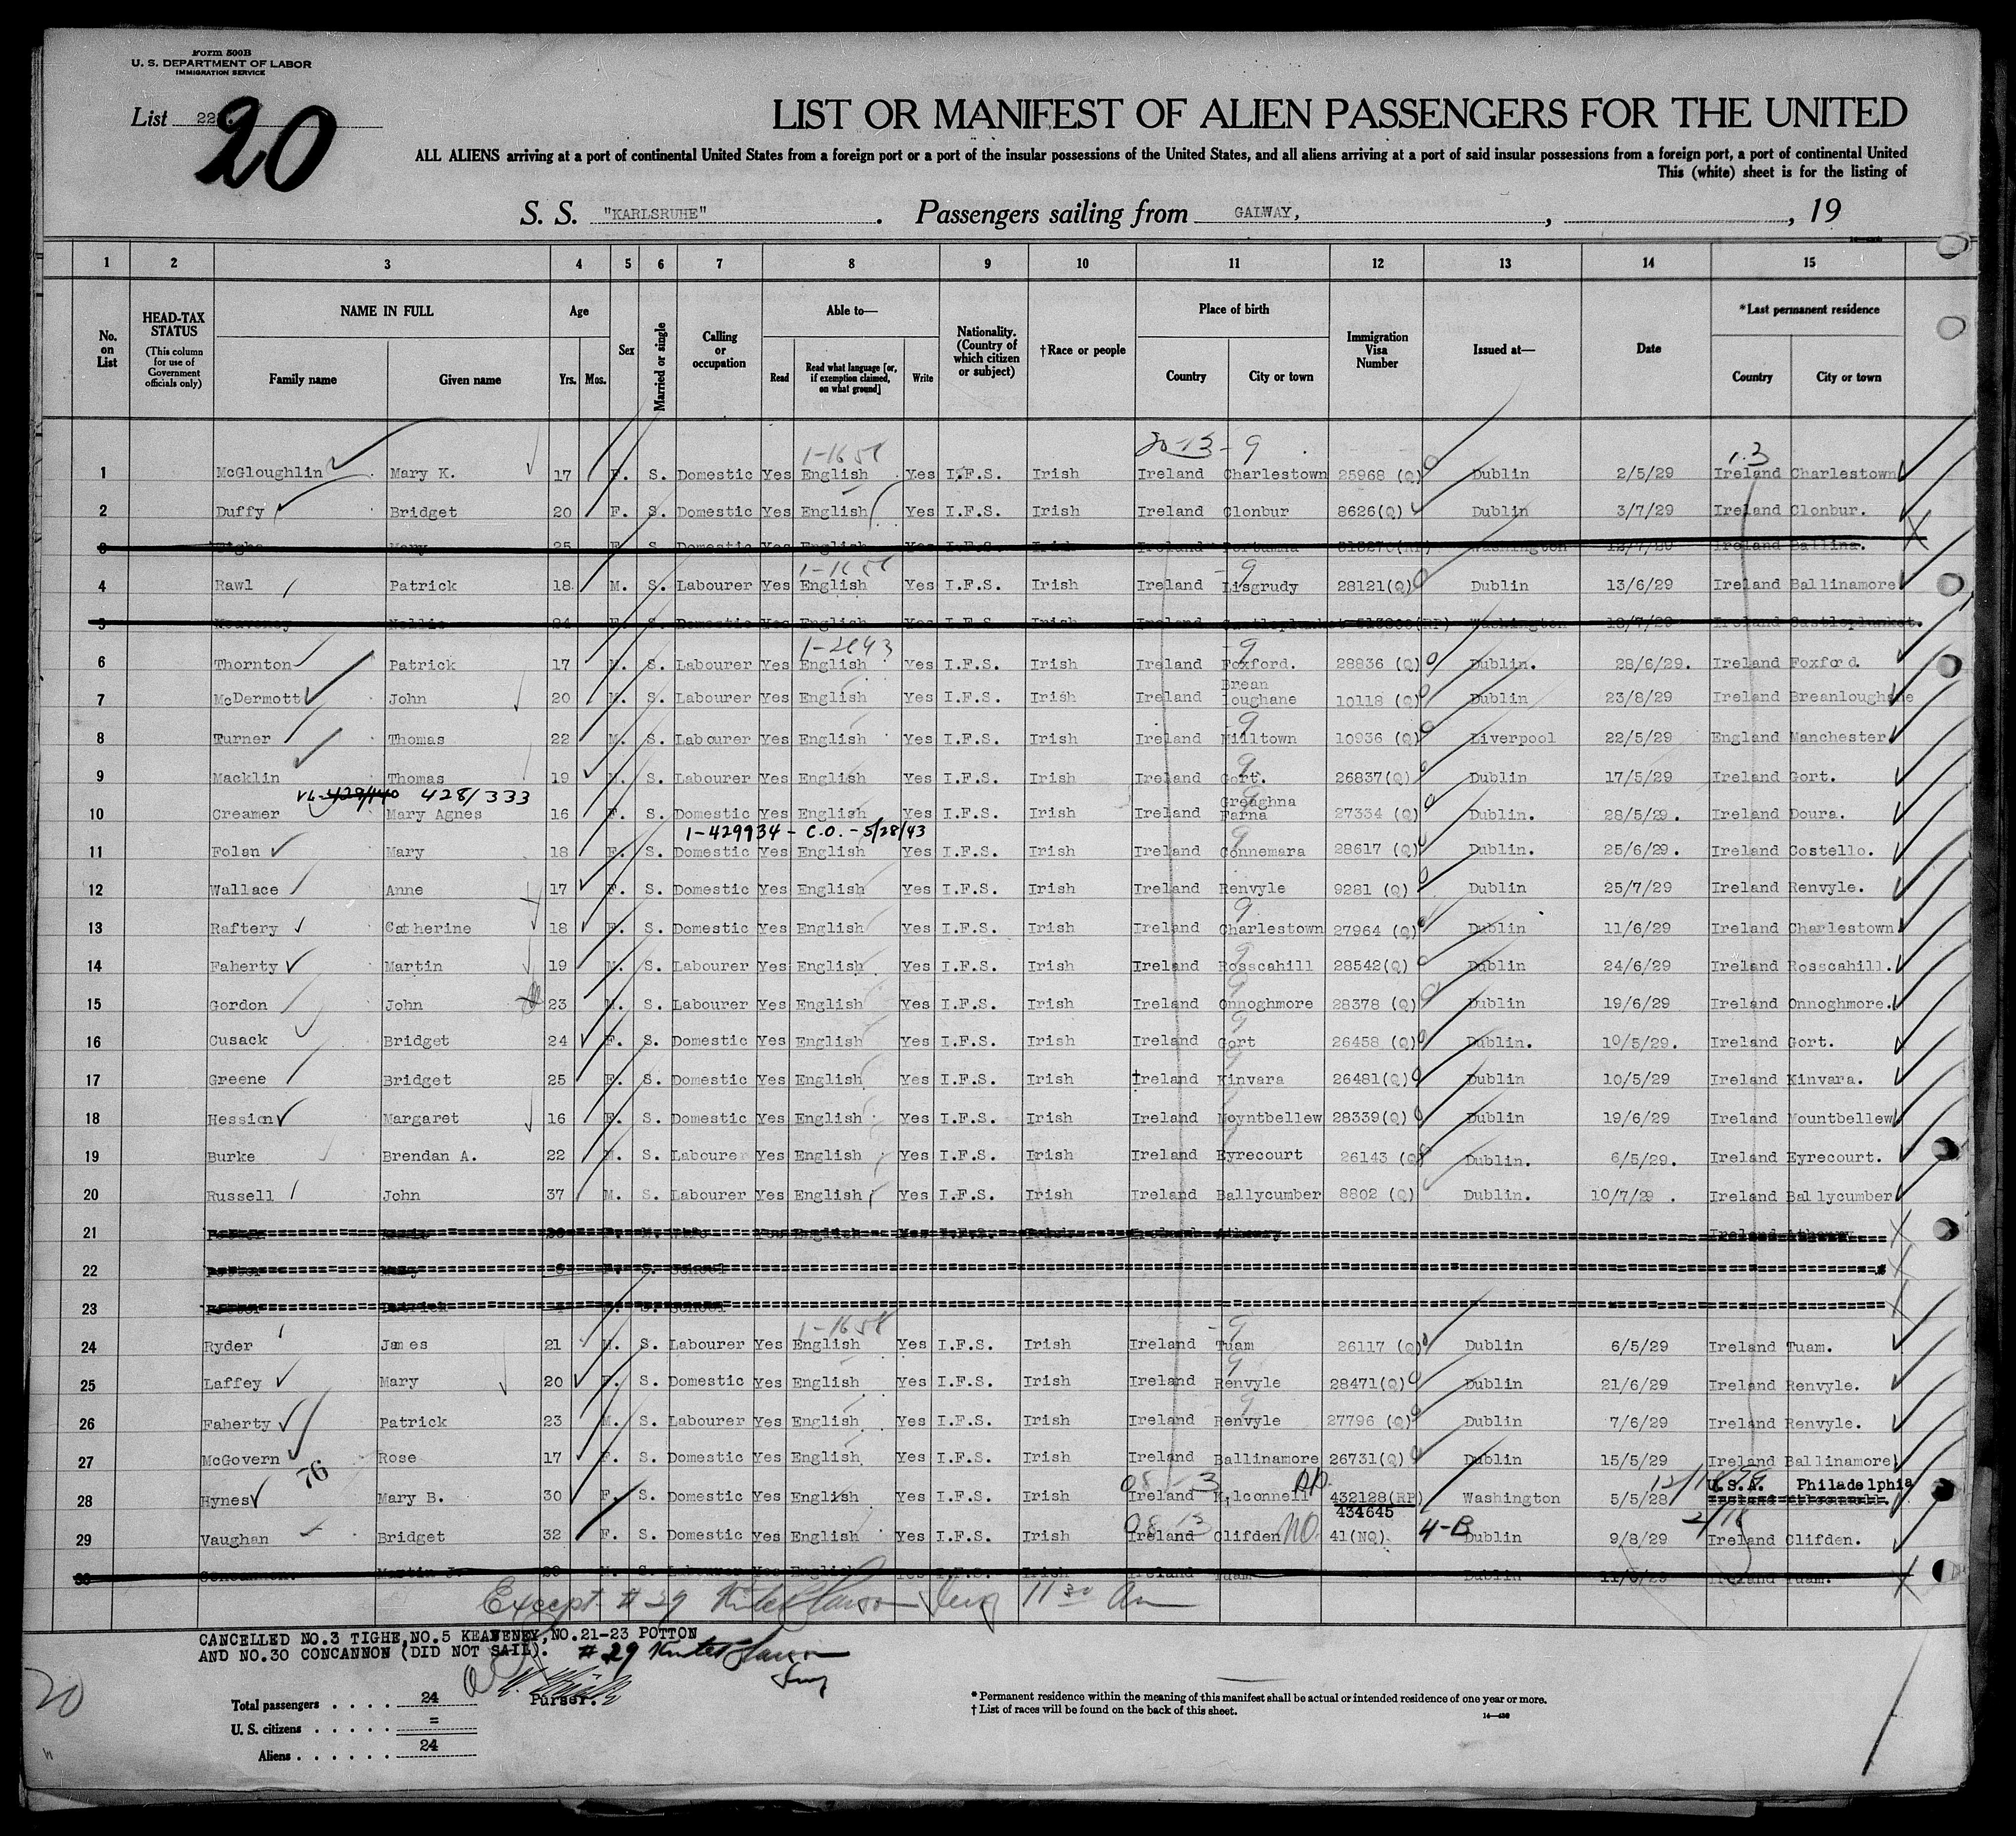 Form 500B
U. S. DEPARTMENT OF LABOR
IMMIGRATION SERVICE
List 22
20
LIST OR MANIFEST OF ALIEN PASSENGERS FOR THE UNITED
ALL ALIENS arriving at a port of continental United States from a foreign port or a port of the insular possessions of the United States, and all aliens arriving at a port of said insular possessions from a foreign port, a port of continental United
This (white) sheet is for the listing of
S. S. "KARLSRUHE". Passengers sailing from GALWAY, , , 19
1 2 3 4 5 6 7 8 9 10 11 12 13 14 15
No. on List
HEAD-TAX STATUS (This column for use of Government officials only)
NAME IN FULL Family name Given name
Age Yrs. Mos.
Sex
Married or single
Calling or occupation
Able to— Read Read what language [or, if exemption claimed, on what ground] Write
Nationality. (Country of which citizen or subject)
†Race or people
Place of birth Country City or town
Immigration Visa Number
Issued at—
Date
*Last permanent residence Country City or town
1-1658 20-13-9
1 McGloughlin Mary K. 17 F. S. Domestic Yes English Yes I.F.S. Irish Ireland Charlestown 25968 (Q) Dublin 2/5/29 Ireland Charlestown
2 Duffy Bridget 20 F. S. Domestic Yes English Yes I.F.S. Irish Ireland Clonbur 8626(Q) Dublin 3/7/29 Ireland Clonbur.
3 Tighe Mary 25 F. S. Domestic Yes English Yes I.F.S. Irish Ireland Portumna Washington 12/7/29 Ireland Ballina.
1-1658 -9
4 Rawl Patrick 18 M. S. Labourer Yes English Yes I.F.S. Irish Ireland Lisgrudy 28121(Q) Dublin 13/6/29 Ireland Ballinamore
5 Keaveney Nellie 24 F. S. Domestic Yes English Yes I.F.S. Irish Ireland Castleplunket Washington Ireland Castleplunket.
1-2643 -9
6 Thornton Patrick 17 M. S. Labourer Yes English Yes I.F.S. Irish Ireland Foxford. 28836 (Q) Dublin. 28/6/29. Ireland Foxford.
7 McDermott John 20 M. S. Labourer Yes English Yes I.F.S. Irish Ireland Brean loughane 10118 (Q) Dublin 23/8/29 Ireland Breanloughane
8 Turner Thomas 22 M. S. Labourer Yes English Yes I.F.S. Irish Ireland Milltown 10936 (Q) Liverpool 22/5/29 England Manchester
9 Macklin Thomas 19 M. S. Labourer Yes English Yes I.F.S. Irish Ireland Gort. 26837(Q) Dublin 17/5/29 Ireland Gort.
VL-429/440 428/333
10 Creamer Mary Agnes 16 F. S. Domestic Yes English Yes I.F.S. Irish Ireland Greaghna Farna 27334 (Q) Dublin. 28/5/29. Ireland Doura.
1-429934 - C.O. - 5/28/43
11 Folan Mary 18 F. S. Domestic Yes English Yes I.F.S. Irish Ireland Connemara 28617 (Q) Dublin. 25/6/29. Ireland Costello.
12 Wallace Anne 17 F. S. Domestic Yes English Yes I.F.S. Irish Ireland Renvyle 9281 (Q) Dublin 25/7/29 Ireland Renvyle.
13 Raftery Catherine 18 F. S. Domestic Yes English Yes I.F.S. Irish Ireland Charlestown 27964 (Q) Dublin 11/6/29 Ireland Charlestown
14 Faherty Martin 19 M. S. Labourer Yes English Yes I.F.S. Irish Ireland Rosscahill 28542(Q) Dublin 24/6/29 Ireland Rosscahill.
15 Gordon John 23 M. S. Labourer Yes English Yes I.F.S. Irish Ireland Onnoghmore 28378 (Q) Dublin 19/6/29 Ireland Onnoghmore.
16 Cusack Bridget 24 F. S. Domestic Yes English Yes I.F.S. Irish Ireland Gort 26458 (Q) Dublin. 10/5/29. Ireland Gort.
17 Greene Bridget 25 F. S. Domestic Yes English Yes I.F.S. Irish Ireland Kinvara 26481(Q) Dublin 10/5/29 Ireland Kinvara.
18 Hession Margaret 16 F. S. Domestic Yes English Yes I.F.S. Irish Ireland Moyntbellew 28339(Q) Dublin 19/6/29 Ireland Mountbellew
19 Burke Brendan A. 22 M. S. Labourer Yes English Yes I.F.S. Irish Ireland Eyrecourt 26143 (Q) Dublin. 6/5/29. Ireland Eyrecourt.
20 Russell John 37 M. S. Labourer Yes English Yes I.F.S. Irish Ireland Ballycumber 8802 (Q) Dublin. 10/7/29 . Ireland Ballycumber
21 Yes English Yes I.F.S. Ireland Athenry Ireland Athenry
22 Mary School
23 Patrick School
1-1658 -9
24 Ryder James 21 M. S. Labourer Yes English Yes I.F.S. Irish Ireland Tuam 26117 (Q) Dublin 6/5/29 Ireland Tuam.
25 Laffey Mary 20 F. S. Domestic Yes English Yes I.F.S. Irish Ireland Renvyle 28471(Q) Dublin 21/6/29 Ireland Renvyle.
26 Faherty Patrick 23 M. S. Labourer Yes English Yes I.F.S. Irish Ireland Renvyle 27796 (Q) Dublin 7/6/29 Ireland Renvyle.
27 McGovern Rose 17 F. S. Domestic Yes English Yes I.F.S. Irish Ireland Ballinamore 26731(Q) Dublin 15/5/29 Ireland Ballinamore
76
28 Hynes Mary B. 30 F. S. Domestic Yes English Yes I.F.S. Irish Ireland Kilconnell 432128(RP) 434645 Washington 5/5/28 U.S.A. Philadelphia
29 Vaughan Bridget 32 F. S. Domestic Yes English Yes I.F.S. Irish Ireland Clifden NO 41(NQ) 4-B Dublin 9/8/29 Ireland Clifden.
30 Concannon. Martin J. 29 M. S. Labourer Yes English Yes I.F.S. Irish Ireland Tuam Dublin 11/6/29 Ireland Tuam.
Except #29 11 30 Am
CANCELLED NO.3 TIGHE,NO.5 KEAVENEY,NO.21-23 POTTON
AND NO.30 CONCANNON (DID NOT SAIL). #29
Purser.
20
Total passengers . . . . 24
U. S. citizens . . . . . =
Aliens . . . . . . 24
*Permanent residence within the meaning of this manifest shall be actual or intended residence of one year or more.
†List of races will be found on the back of this sheet.